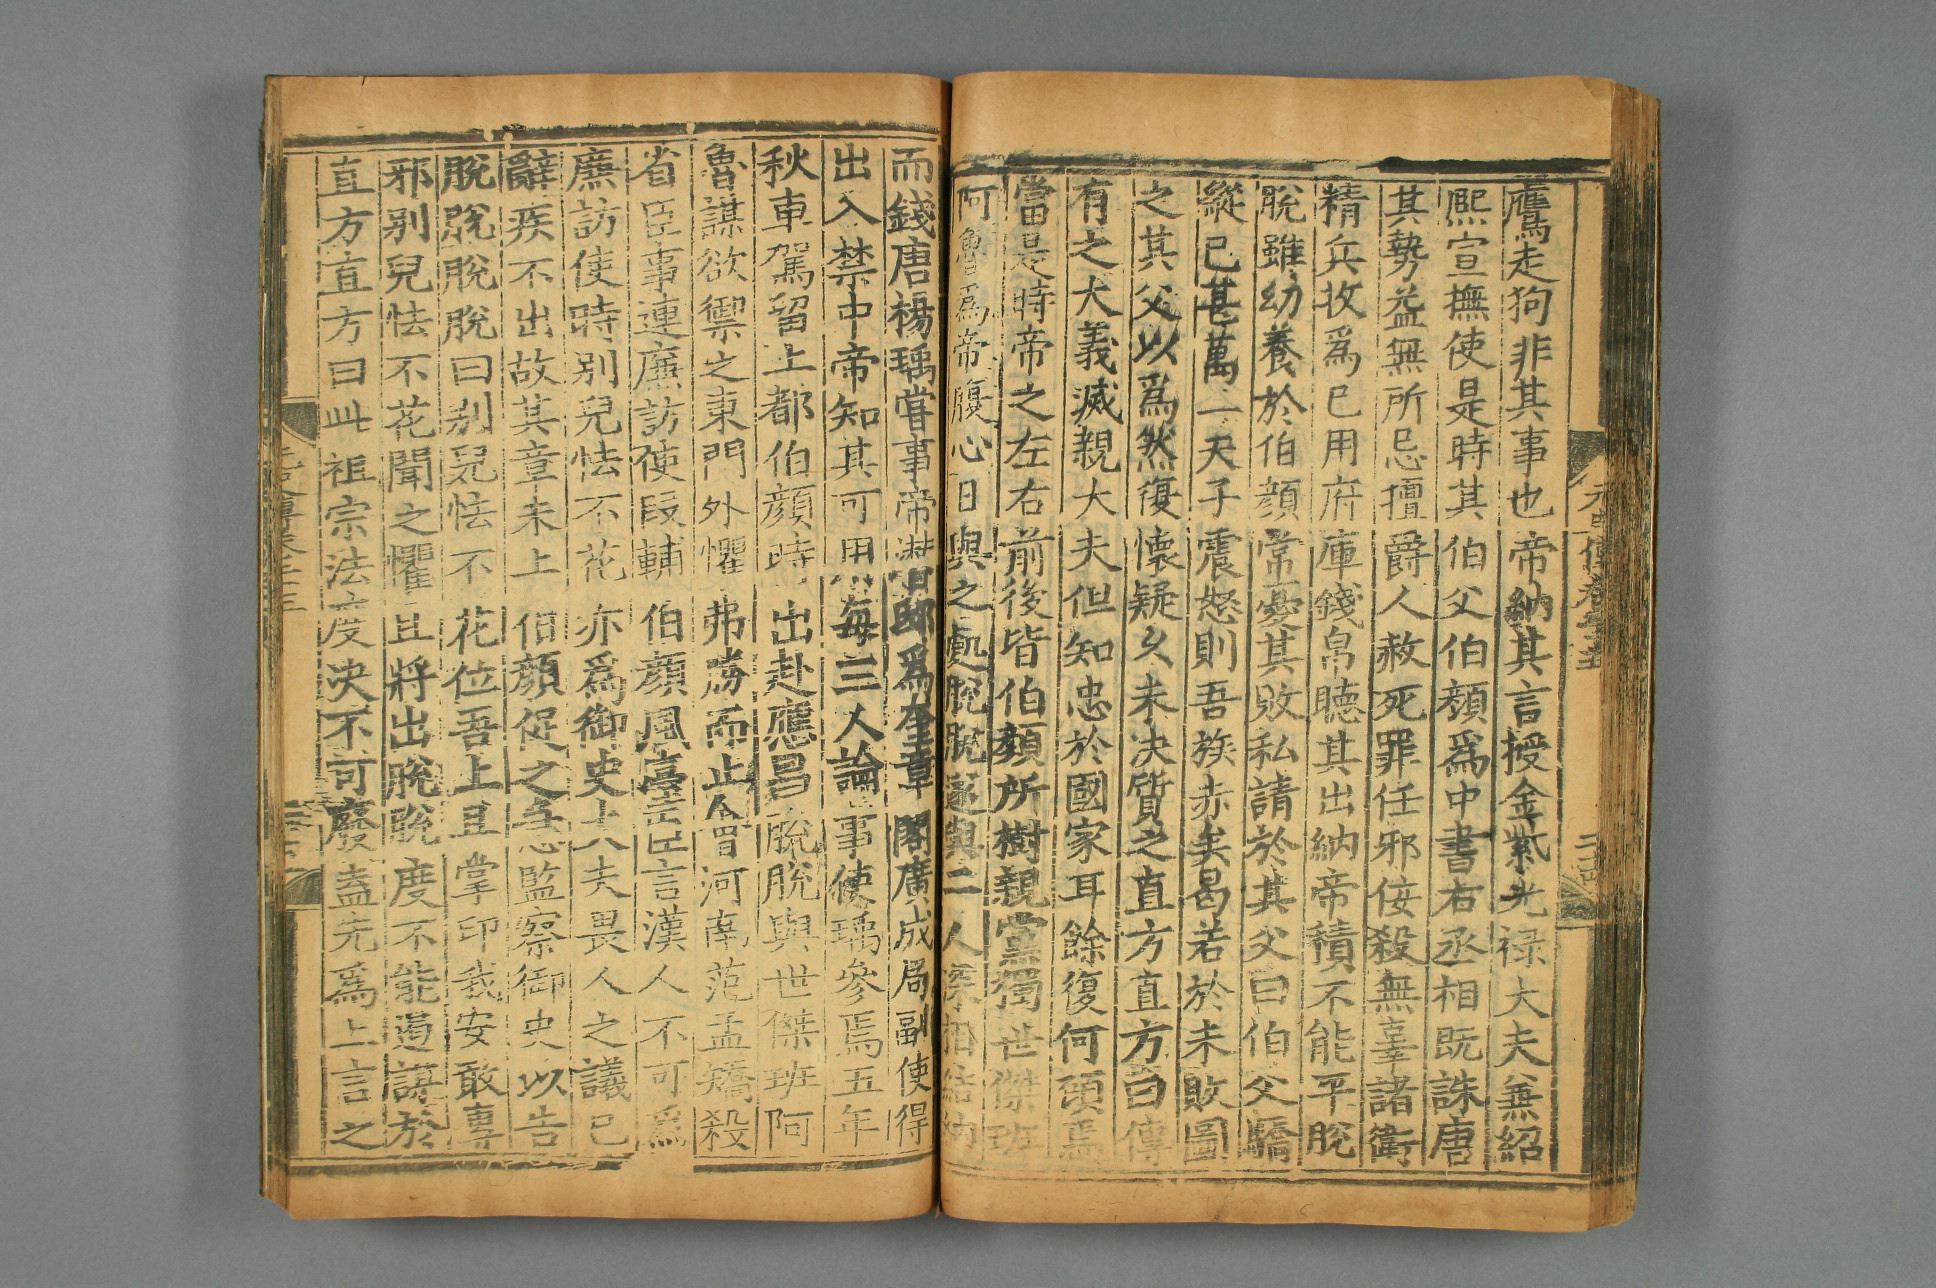 鷹走狗非其事也帝納其言授金紫光禄大夫兼紹
熙宣撫使是時其伯父伯顏爲中書右丞相既誅唐
其勢益無所忌擅爵人赦死罪任邪佞殺無辜諸衛
精兵收爲已用府庫錢帛聽其出納帝積不能平脫
脫雖幼養於伯顏常憂其敗私請於其父曰伯父驕
縱已甚萬一天子震怒則吾族赤矣曷若於未敗圖
之其父以爲然復懷疑久未决質之直方直方曰傳
有之大義滅親大夫但知忠於國家耳餘復何顧焉
當是時帝之左右前後皆伯顏所樹親黨獨世傑班
阿魯爲帝腹心日與之處脫脫遂與二人深相結
而錢唐楊瑀甞事帝潜邸爲奎章閣廣成局副使得
出入禁中帝知其可用每三人論事使瑀參焉五年
秋車駕留上都伯顏時出赴應昌脫脫與世傑班阿
魯謀欲禦之東門外懼弗勝而止會河南范孟矯殺
省臣事連廉訪使段輔伯顏風臺臣言漢人不可爲
廉訪使時别兒怯不花亦爲御史大夫畏人之議已
辭疾不出故其章未上伯顏促之急監察御史以告
脫脫脫脫曰别兒怯不花位吾上且掌印我安敢專
邪别兒怯不花聞之懼且將出脫脫度不能遏謀於
直方直方曰此祖宗法度决不可廢盍先爲上言之